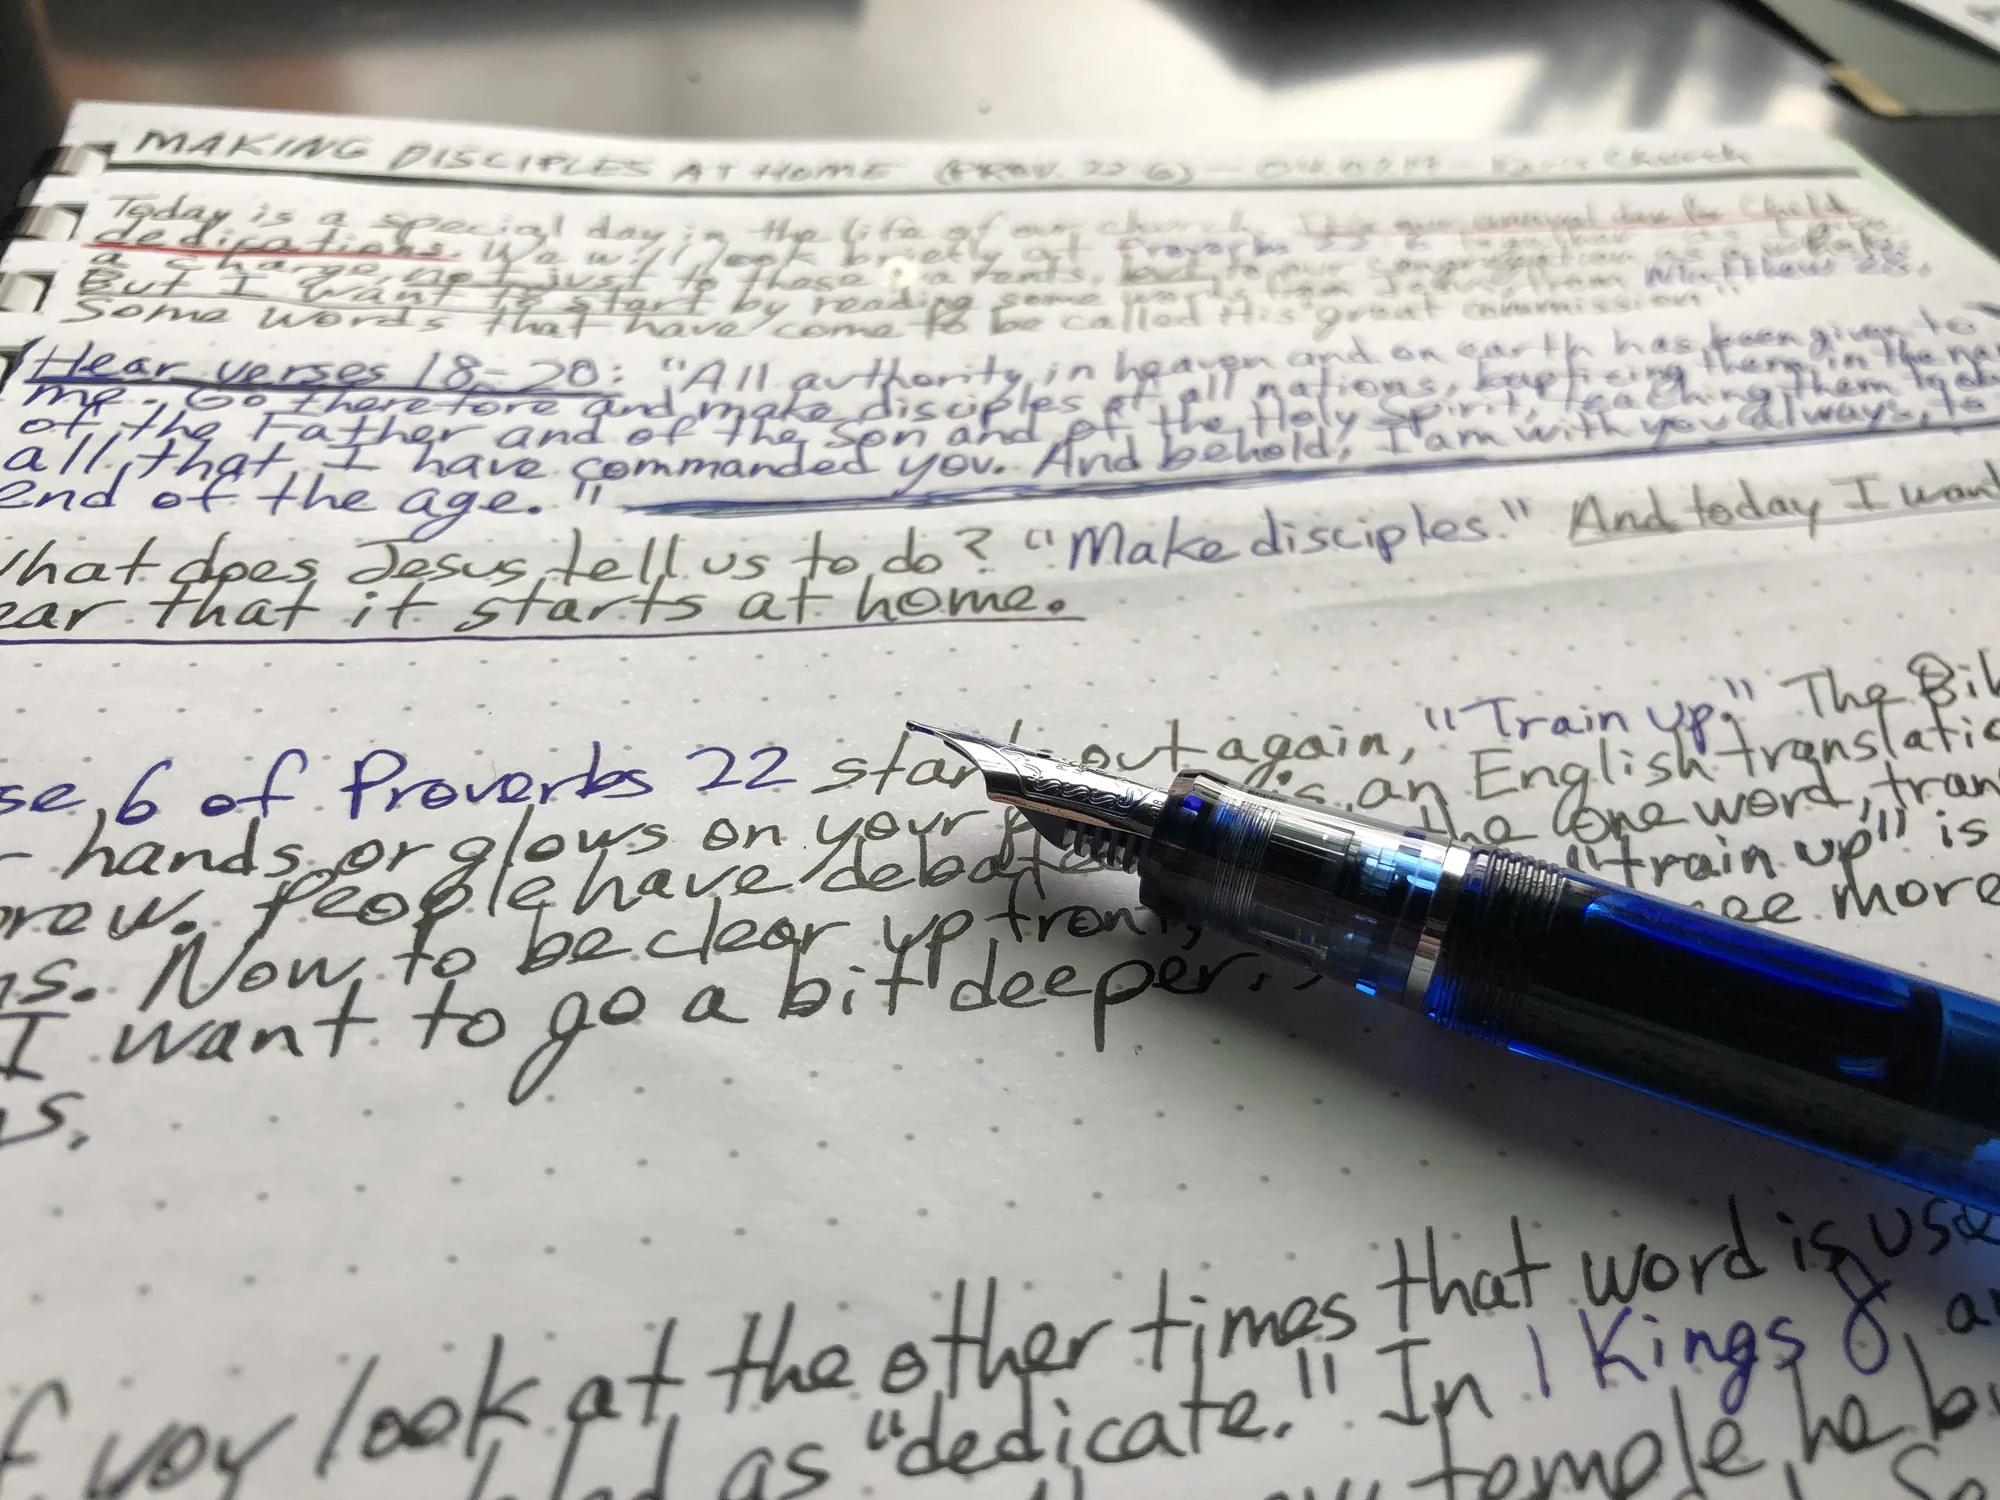 MAKING DISCIPLES AT HOME (PROV. 22:6) – Church
Today is a special day in the life of our church. This our annual day for child
dedications. We will look briefly at Proverbs 22:6 together as I give
a charge, not just to those parents, but to our congregation as a whole.
But I want to start by reading some words from Jesus from Matthew 28.
Some words that have come to be called His "great commission"
Hear verses 18-20: "All authority in heaven and on earth has been given to
me. Go therefore and make disciples of all nations, baptizing them in the na
of the Father and of the Son and of the Holy Spirit, teaching them to ob
all that I have commanded you. And behold, I am with you always, to
end of the age."
hat does Jesus tell us to do? "Make disciples." And today I want
ear that it starts at home.
se 6 of Proverbs 22 out again, "Train up." The Bib
hands or glows on your an English translatio
rew. People have debate the one word, tran
ns. Now to be clear up front, "train up" is
I want to go a bit deeper. see more
ns.
f you look at the other times that word is use
as "dedicate." In 1 Kings 8, a
temple he bu
So